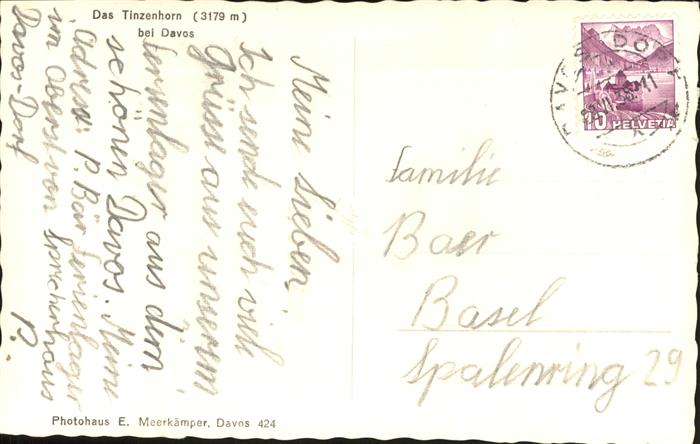 Das Tinzenhorn (3179 m)
bei Davos
Meine Lieben,
Ich sende euch viele
Grüsse aus unserem
Ferienlager aus dem
schönen Davos. Meine
Adress: P. Bär Ferienlager
im Oberst von Sprecherhaus
Davos-Dorf
P.
Photohaus E. Meerkämper, Davos 424
DAVOS DORF
10 HELVETIA
Familie
Baer
Basel
Spalenring 29